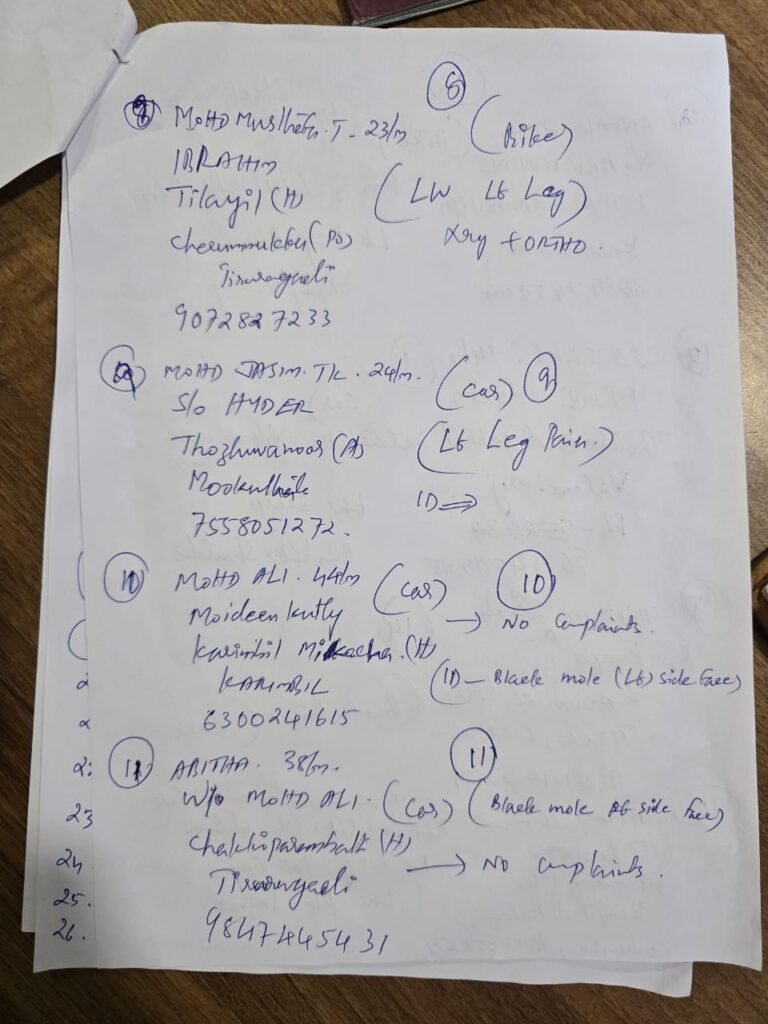 8
8 MOHD Muslhafa. T - 23/m (Bike)
IBRAHIM
Tilayil (H) (LW Lt Leg)
Cherummukku (PO) Xry + ORTHO.
Tirurangadi
9072827233
MOHD JASIM. TK. 24/m. (Car) 9
S/o HYDER
Thozhuvanoor (H) (Lt Leg Pain.)
Mookuthala ID ⇒
7558051272.
10 MOHD ALI. 44/m (Car) 10
Moideen kutty → No Complaints.
Karimbil (H)
KARIMBIL (ID - Black mole (Lt) side face)
6300241615
11 ABITHA. 38/m. 11
W/o MOHD ALI. (Car) (Black mole side face)
Chakkiparambath (H)
Tirurangadi → No Complaints.
9847445431
2
2
22
23
24
25.
26.